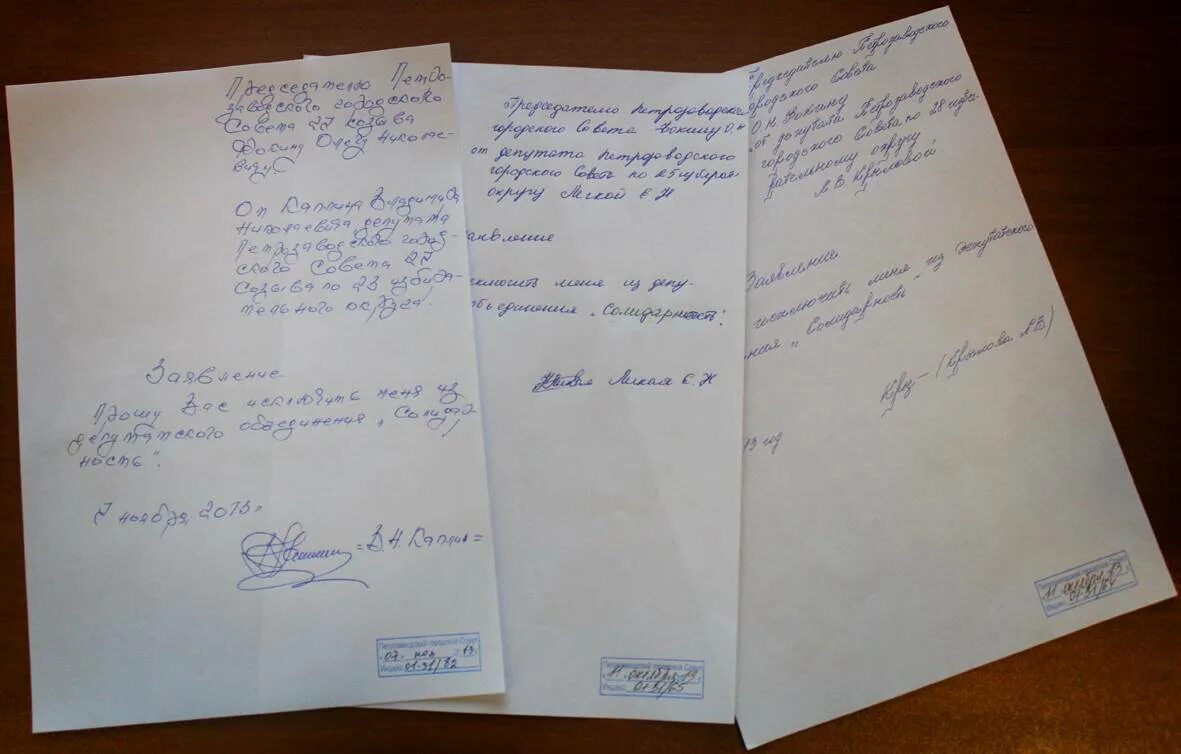 Председателю Петро-
заводского городского
Совета 27 созыва
Фокину Олегу Николае-
вичу
От Капгина Владимира
Николаевича депутата
Петрозаводского город-
ского Совета 27
созыва по 23 избира-
тельного округа.
Заявление
Прошу Вас исключить меня из
депутатского объединения „Солидар-
ность".
7 ноября 2013г.
= В.Н. =
Петрозаводский городской Совет
"07" ноя 2013 г.
Индекс 01-31/82
Председателю Петрозаводского
городского Совета Фокину О.Н
от депутата Петрозаводского
городского Совета по
округу Легкой Е Н
заявление
исключить меня из депу-
объединения „Солидарность".
Легкая Е.Н
Петрозаводский городской Совет
"11" октября 2013 г.
Индекс 01-31/65
Председателю Петрозаводского
городского Совета
О.Н. Фокину
от депутата Петрозаводского
городского Совета по 28 избира-
тельному округу
Л.В. Крыловой.
Заявление
исключить меня из депутатского
ния „Солидарность"
(Крылова Л.В.)
13 год
Петрозаводский городской Совет
11 октября 13
Индекс